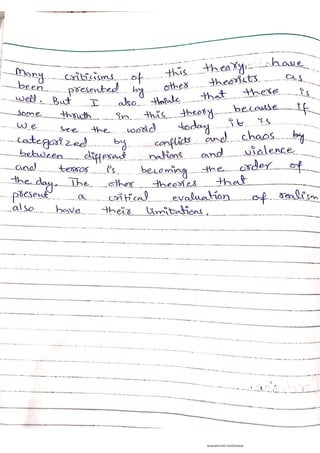 Many criticisms of this theory have
been presented by other theorists as
well. But I also think that there is
some thruth in this theory because if
we see the world today it is
categorized by conflicts and chaos by
between different nations and violence
and terror is becoming the order of
the day. The other theories that
present a critical evaluation of realism
also have their limitations.
Scanned with CamScanner